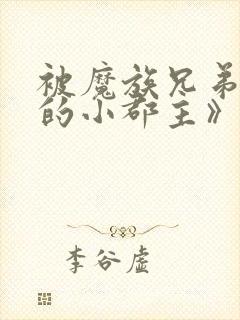 被魔族兄弟
的小郡主》
李谷虚